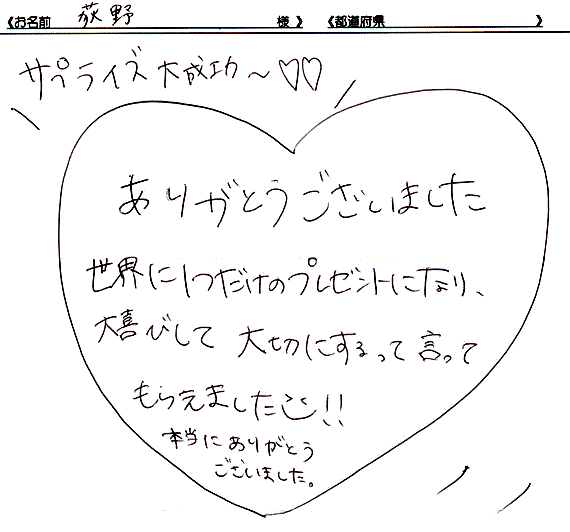 《お名前 荻野 様 》 《都道府県 》
サプライズ大成功～♡♡
ありがとうございました
世界に1つだけのプレゼントになり、
大喜びして 大切にするって言って
もらえました!!
本当にありがとう
ございました。